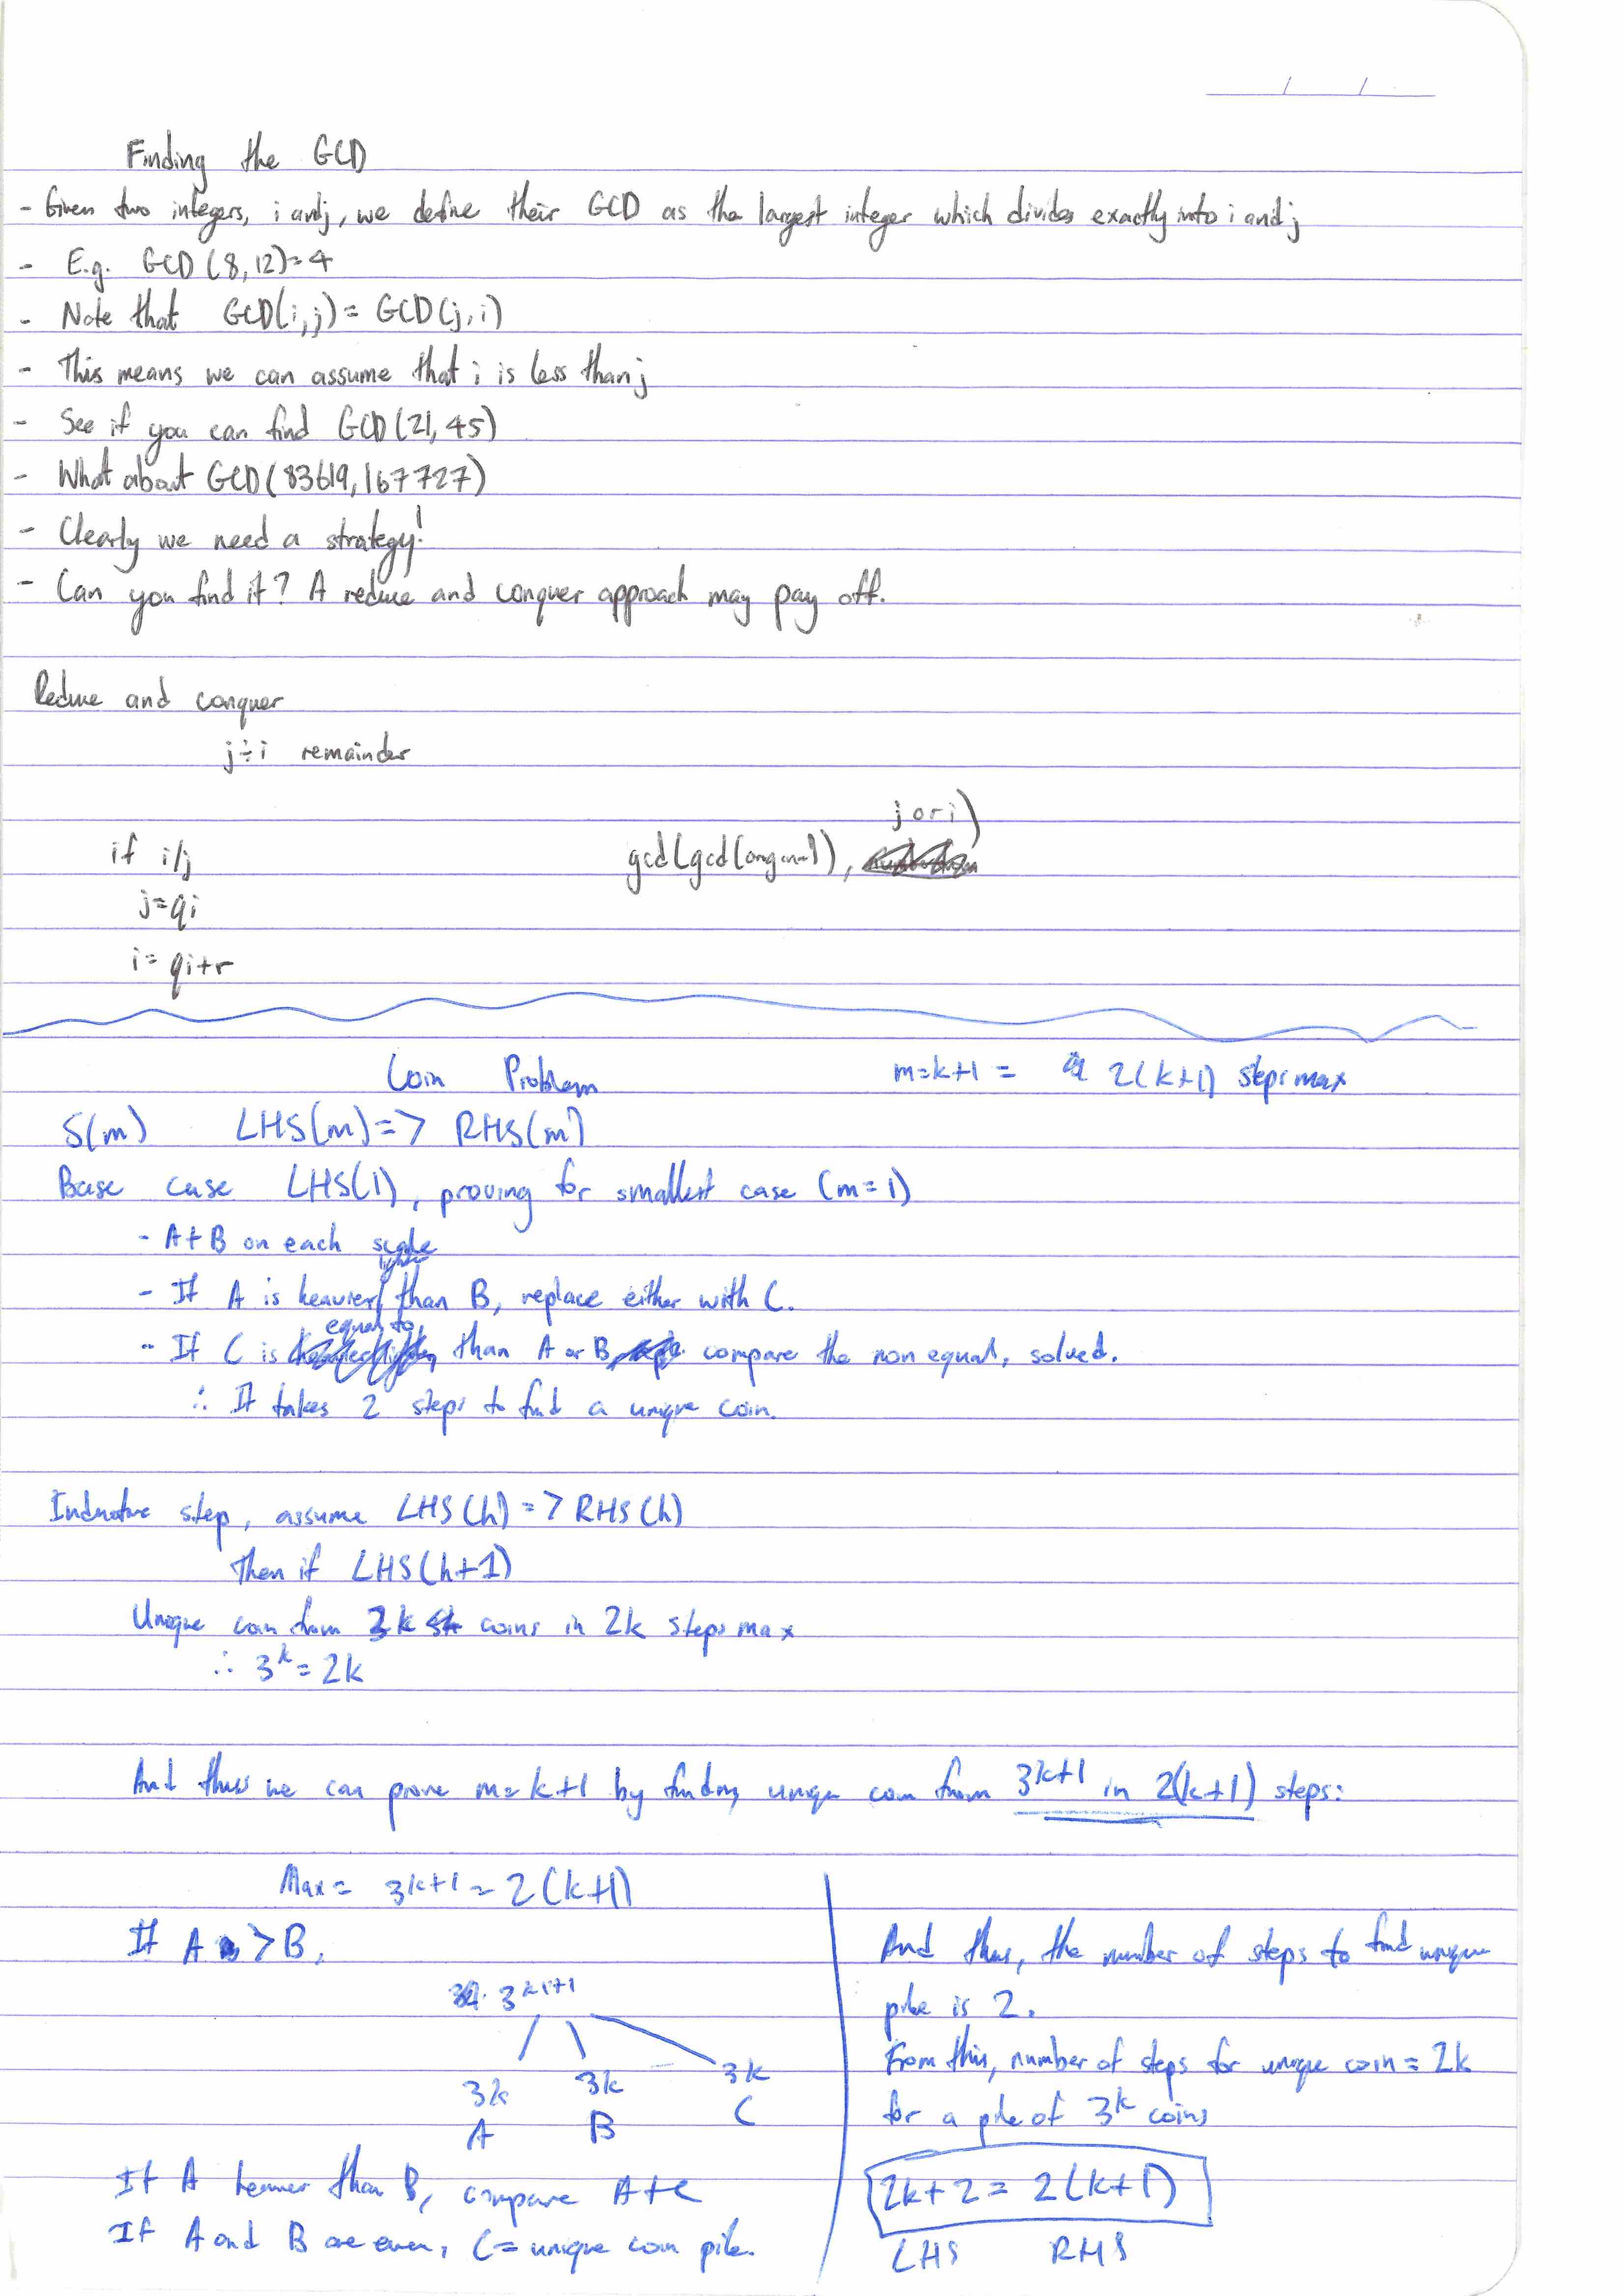 Finding the GCD
- Given two integers, i and j, we define their GCD as the largest integer which divides exactly into i and j
- E.g. GCD(8,12)=4
- Note that GCD(i,j)= GCD(j,i)
- This means we can assume that i is less than j
- See if you can find GCD(21,45)
- What about GCD(83619,167727)
- Clearly we need a strategy!
- Can you find it? A reduce and conquer approach may pay off.
Reduce and conquer
j÷i remainder
if i/j
j=qi
i= qi+r
j or i)
gcd(gcd(original),
Coin Problem
m=k+1 = 2(k+1) steps max
S(m) LHS(m)=> RHS(m)
Base case LHS(1), proving for smallest case (m=1)
- A+B on each scale
- If A is heavier/lighter than B, replace either with C.
- If C is equal to than A or B, compare the non equal, solved.
∴ It takes 2 steps to find a unique coin.
Inductive step, assume LHS(h)=>RHS(h)
Then if LHS(h+1)
Unique coin from 3k coins in 2k steps max
∴ 3^k = 2k
And thus we can prove m=k+1 by finding unique coin from 3^k+1 in 2(k+1) steps:
Max = 3^k+1 = 2(k+1)
If A > B,
3^k+1
3k 3k 3k
A B C
If A heavier than B, compare A+C
If A and B are even, C= unique coin pile.
And thus, the number of steps to find unique
pile is 2.
From this, number of steps for unique coin = 2k
for a pile of 3^k coins
2k+2 = 2(k+1)
LHS RHS